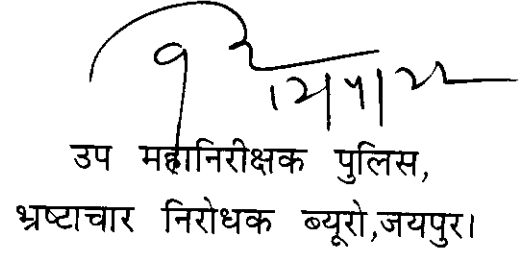 उप महानिरीक्षक पुलिस,
भ्रष्टाचार निरोधक ब्यूरो,जयपुर।